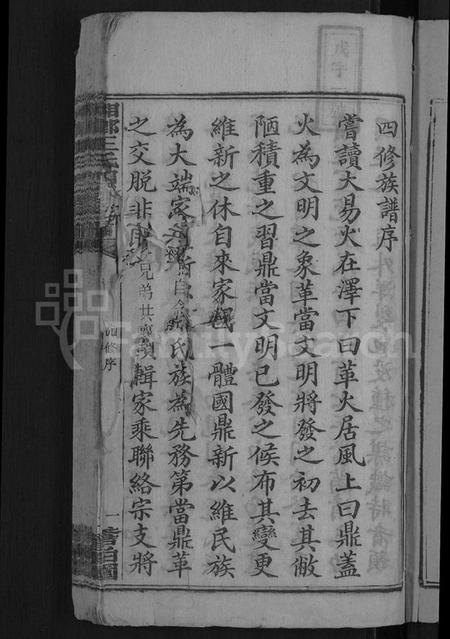 四修族譜序
嘗讀大易火在澤下曰革火居風上曰鼎蓋
火為文明之象革當文明將發之初去其敝
陋積重之習鼎當文明已發之候布其變更
維新之休自來家國一體國鼎新以維民族
為大端家鼎新自合氏族為先務第當鼎革
之交脫非兄弟其勷纘輯家乘聯絡宗支將
四修序
一
FamilySearch